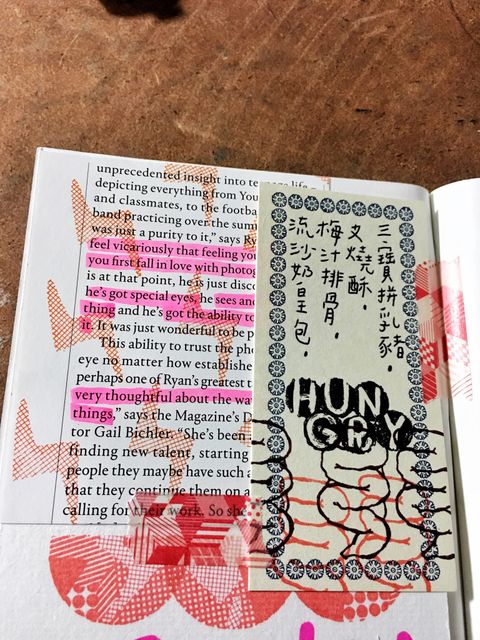 unprecedented insight into teenage life
depicting everything from You
and classmates, to the footba
band practicing over the sum
was just a purity to it,” says Ry
feel vicariously that feeling you
you first fall in love with photog
is at that point, he is just disco
he’s got special eyes, he sees and
thing and he’s got the ability to
it. It was just wonderful to be p
This ability to trust the pho
eye no matter how establishe
perhaps one of Ryan’s greatest t
very thoughtful about the wa
things,” says the Magazine’s D
tor Gail Bichler. “She’s been
finding new talent, starting
people they maybe have such a
that they continue them on a
calling for their work. So she
三寶拼乳豬.
叉燒酥.
梅汁排骨.
流沙奶皇包.
HUN
GRY